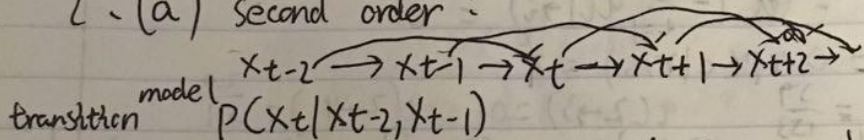 2. (a) second order.
Xt-2 → Xt-1 → Xt → Xt+1 → Xt+2 →
transition model P(Xt|Xt-2, Xt-1)